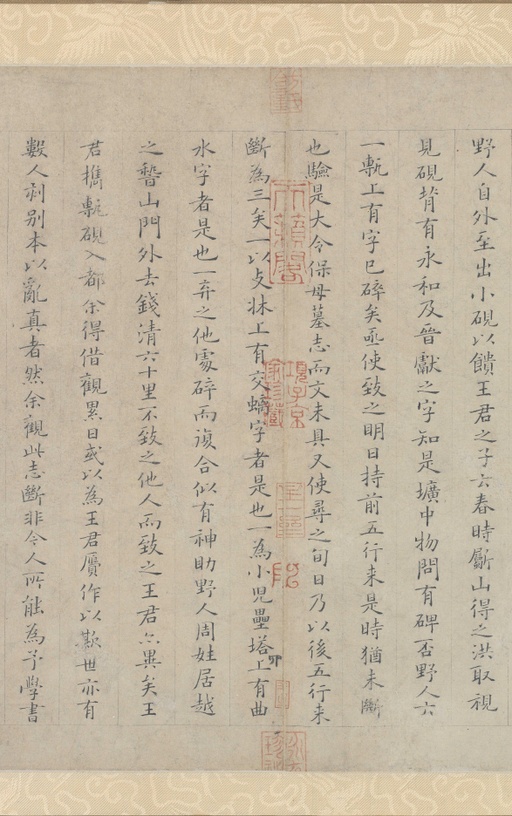 野人自外至出小硯以饋王君之子六春時斸山得之洪取視
見硯背有永和及晉獻之字知是壙中物問有碑否野人云
一甎上有字已碎矣亟使致之明日持前五行来是時猶未斷
也驗是大令保母墓志而文未具又使尋之旬日乃以後五行来
斷為三矣一以支牀上有交螭字者是也一為小児壘塔上有曲
水字者是也一弃之他處碎而復合似有神助野人周姓居越
之稽山門外去錢清六十里不致之他人而致之王君亦異矣王
君攜甎硯入都余得借觀累日或以為王君贋作以欺世亦有
數人刻别本以亂真者然余觀此志斷非今人所能為予學書